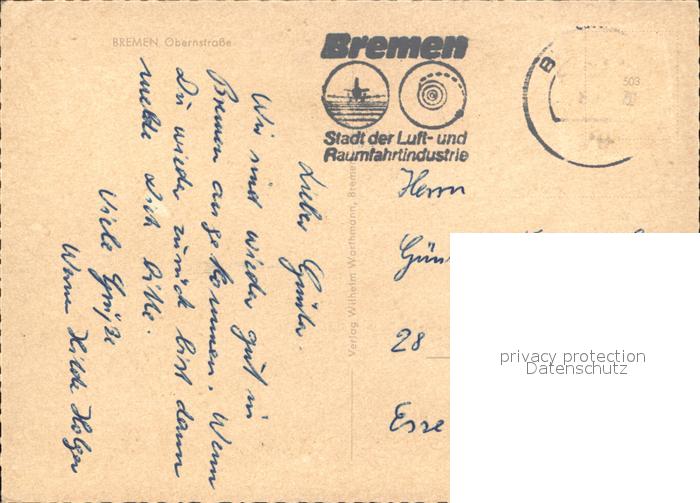 BREMEN Obernstraße
Lieber Günter.
Wir sind wieder gut in
Bremen angekommen. Wenn
Du wieder zurück bist dann
melde Dich bitte.
Viele Grüße
Werner Hilde Holger
Verlag Wilhelm Wasthmann, Bremen
Bremen
Stadt der Luft- und
Raumfahrtindustrie
B
503
Herrn
Gün
28
Esse
privacy protection
Datenschutz